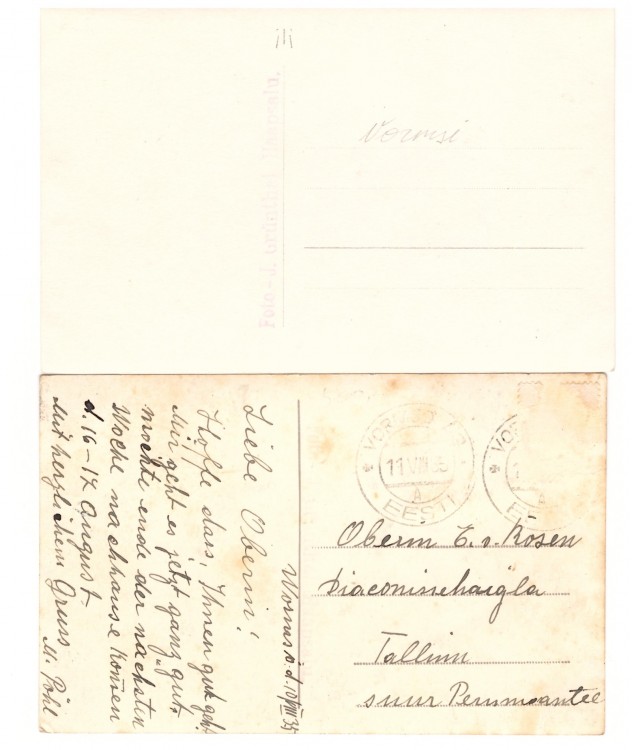 Vormsi
Foto-J. Grünthal,
Worms. d. 10/VIII 35
Liebe Oberin!
Hoffe dass, Ihnen gut geht.
Mir geht es jetzt ganz gut.
möchte ende der nächsten
Woche nachhause kommen
d. 16-17 August.
Mit herzlichem Gruss
M. Pohl
VORMSI
11 VIII 35
A
EESTI
Oberin E. v. Rosen
Diaconissehaigla
Tallinn
suur Pernumantee